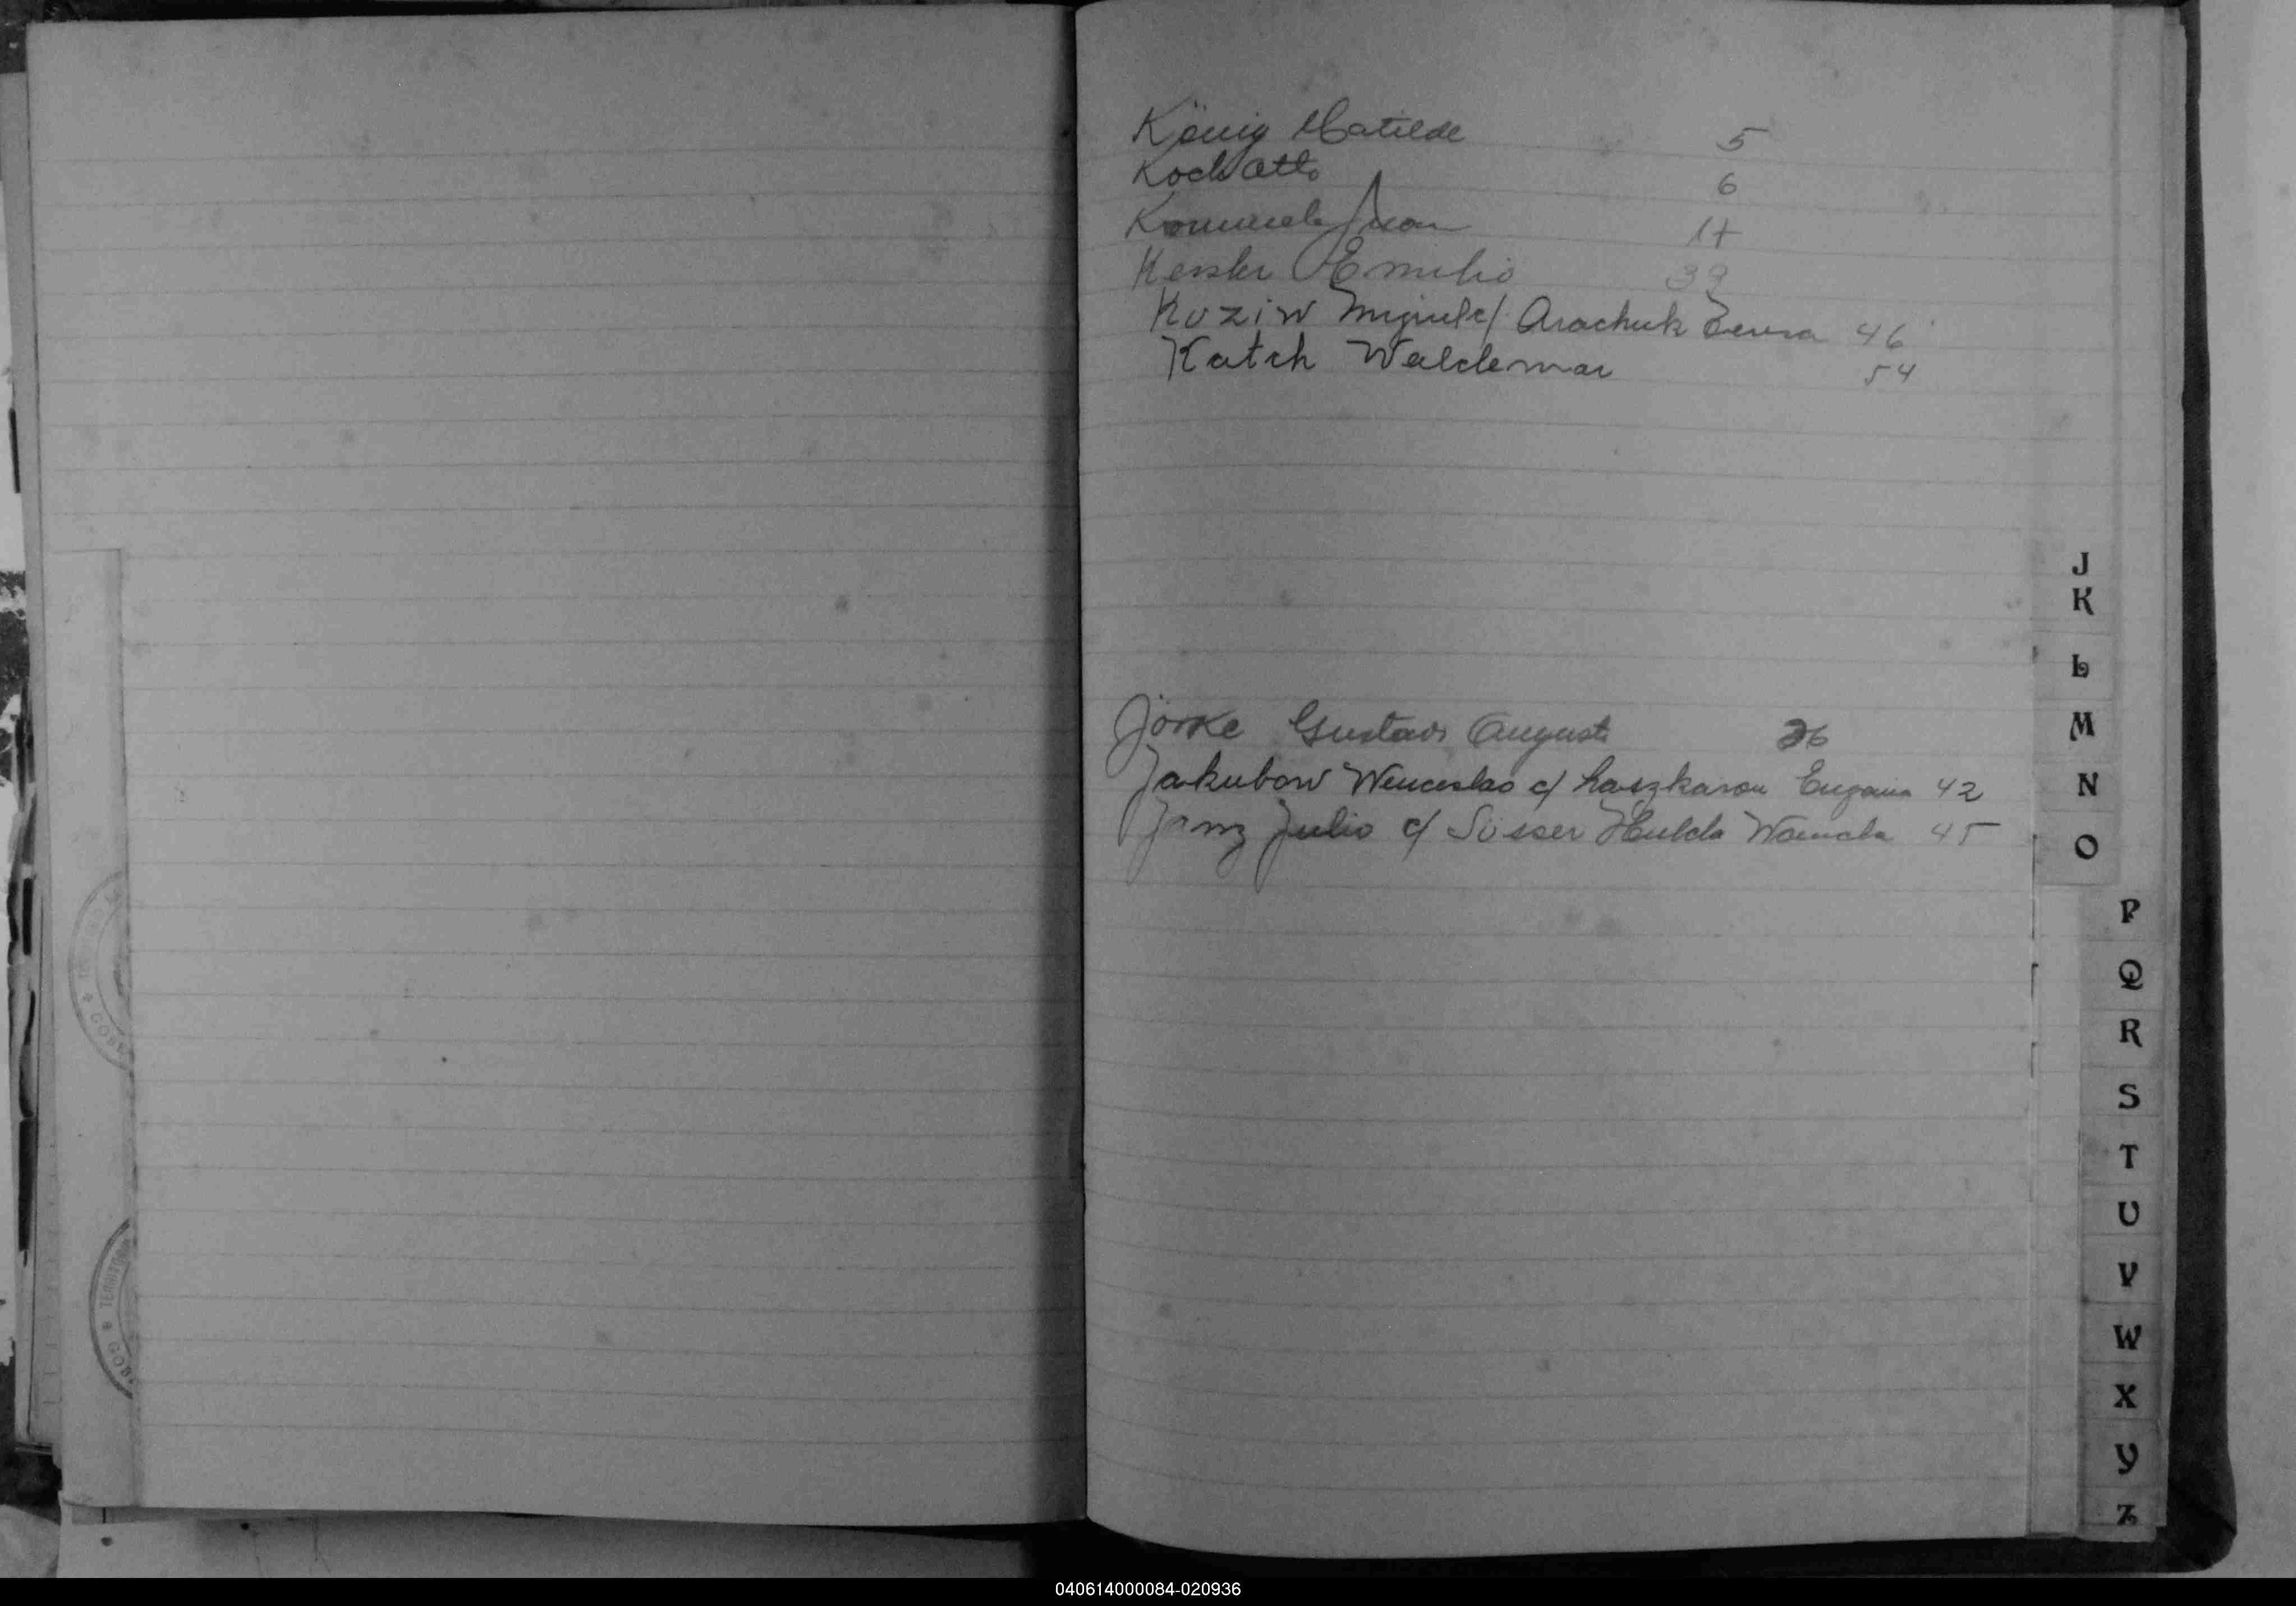 König Matilde 5
Koch Otto 6
Juan 17
Kessler Emilio 39
Koziw Miguel c/ Arachuk 46
Katch Waldemar 54
Jörke Gustavo Augusto 26
Jakubow Wenceslao c/ Laszkason Eugenia 42
Janz Julio c/ Süsser Hulda Wanda 45
J
K
L
M
N
O
P
Q
R
S
T
U
V
W
X
Y
Z
GOB.
TERRITORIO
GOB.
040614000084-020936